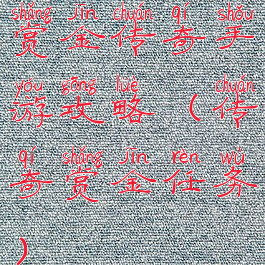 shǎng jīn chuán qí shǒu
赏金传奇手
yóu gōng lüè chuán
游攻略（传
qí shǎng jīn rèn wù
奇赏金任务
）